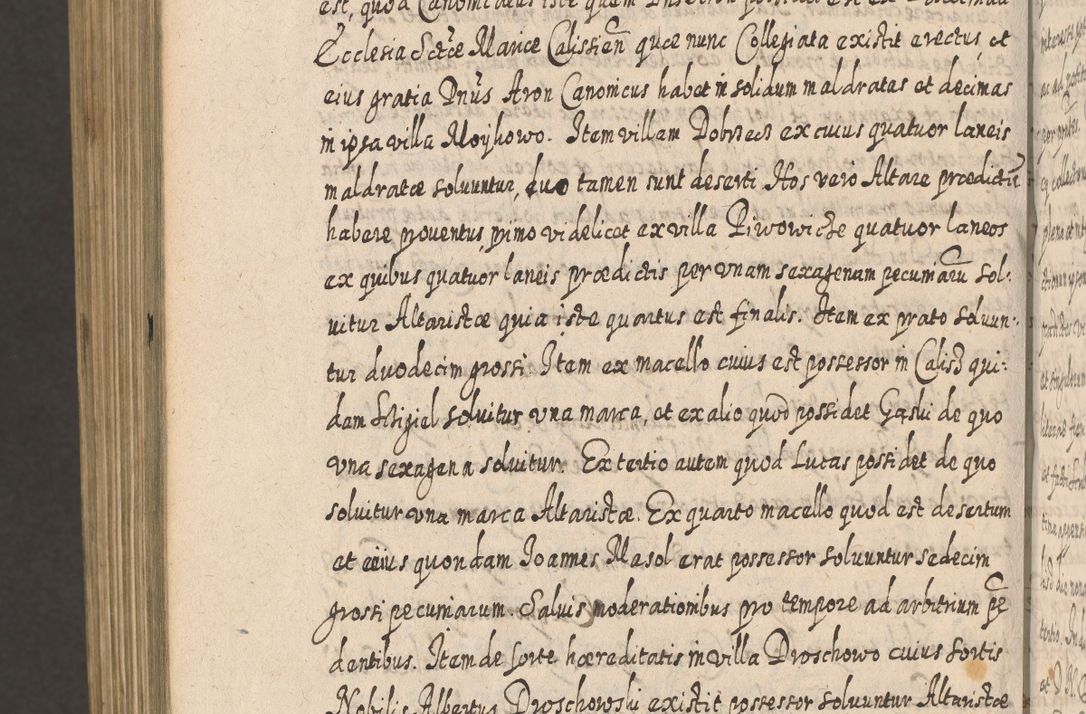 est, quod Canonicatus iste quem
Ecclesia Sctæ Mariæ Calissien̄ quæ nunc Collegiata existit erectus et
eius gratia Dnūs Aron Canonicus habet in solidum maldratas et decimas
in ipsa villa Moykowo. Item villam Dobrzecz ex cuius quatuor laneis
maldratæ soluuntur, duo tamen sunt deserti. Hos vero Altare prædictū
habere prouentus, primo videlicet ex villa Piwowicze quatuor laneos
ex quibus quatuor laneis prædictis per vnam sexagenam pecuniarū sol:
uitur Altaristæ quia iste quartus est finalis. Item ex prato soluun:
tur duodecim grossi. Item ex macello cuius est possessor in Calisz qui:
dam Stigiel soluitur vna marca, et ex alio quod possidet Gąski de quo
vna sexagena soluitur. Ex tertio autem quod Lucas possidet de quo
soluitur vna marca Altaristæ. Ex quarto macello quod est desertum
et eiius quondam Joannes Masol erat possessor soluuntur sedecim
grossi pecuniarum. Saluis moderationibus pro tempore ad arbitrium pe
dentibus. Item de sorte hæreditatis in villa Droschowo cuius sortis
Nobilis Albertus Droschowski existit possessor soluuntur Altaristæ